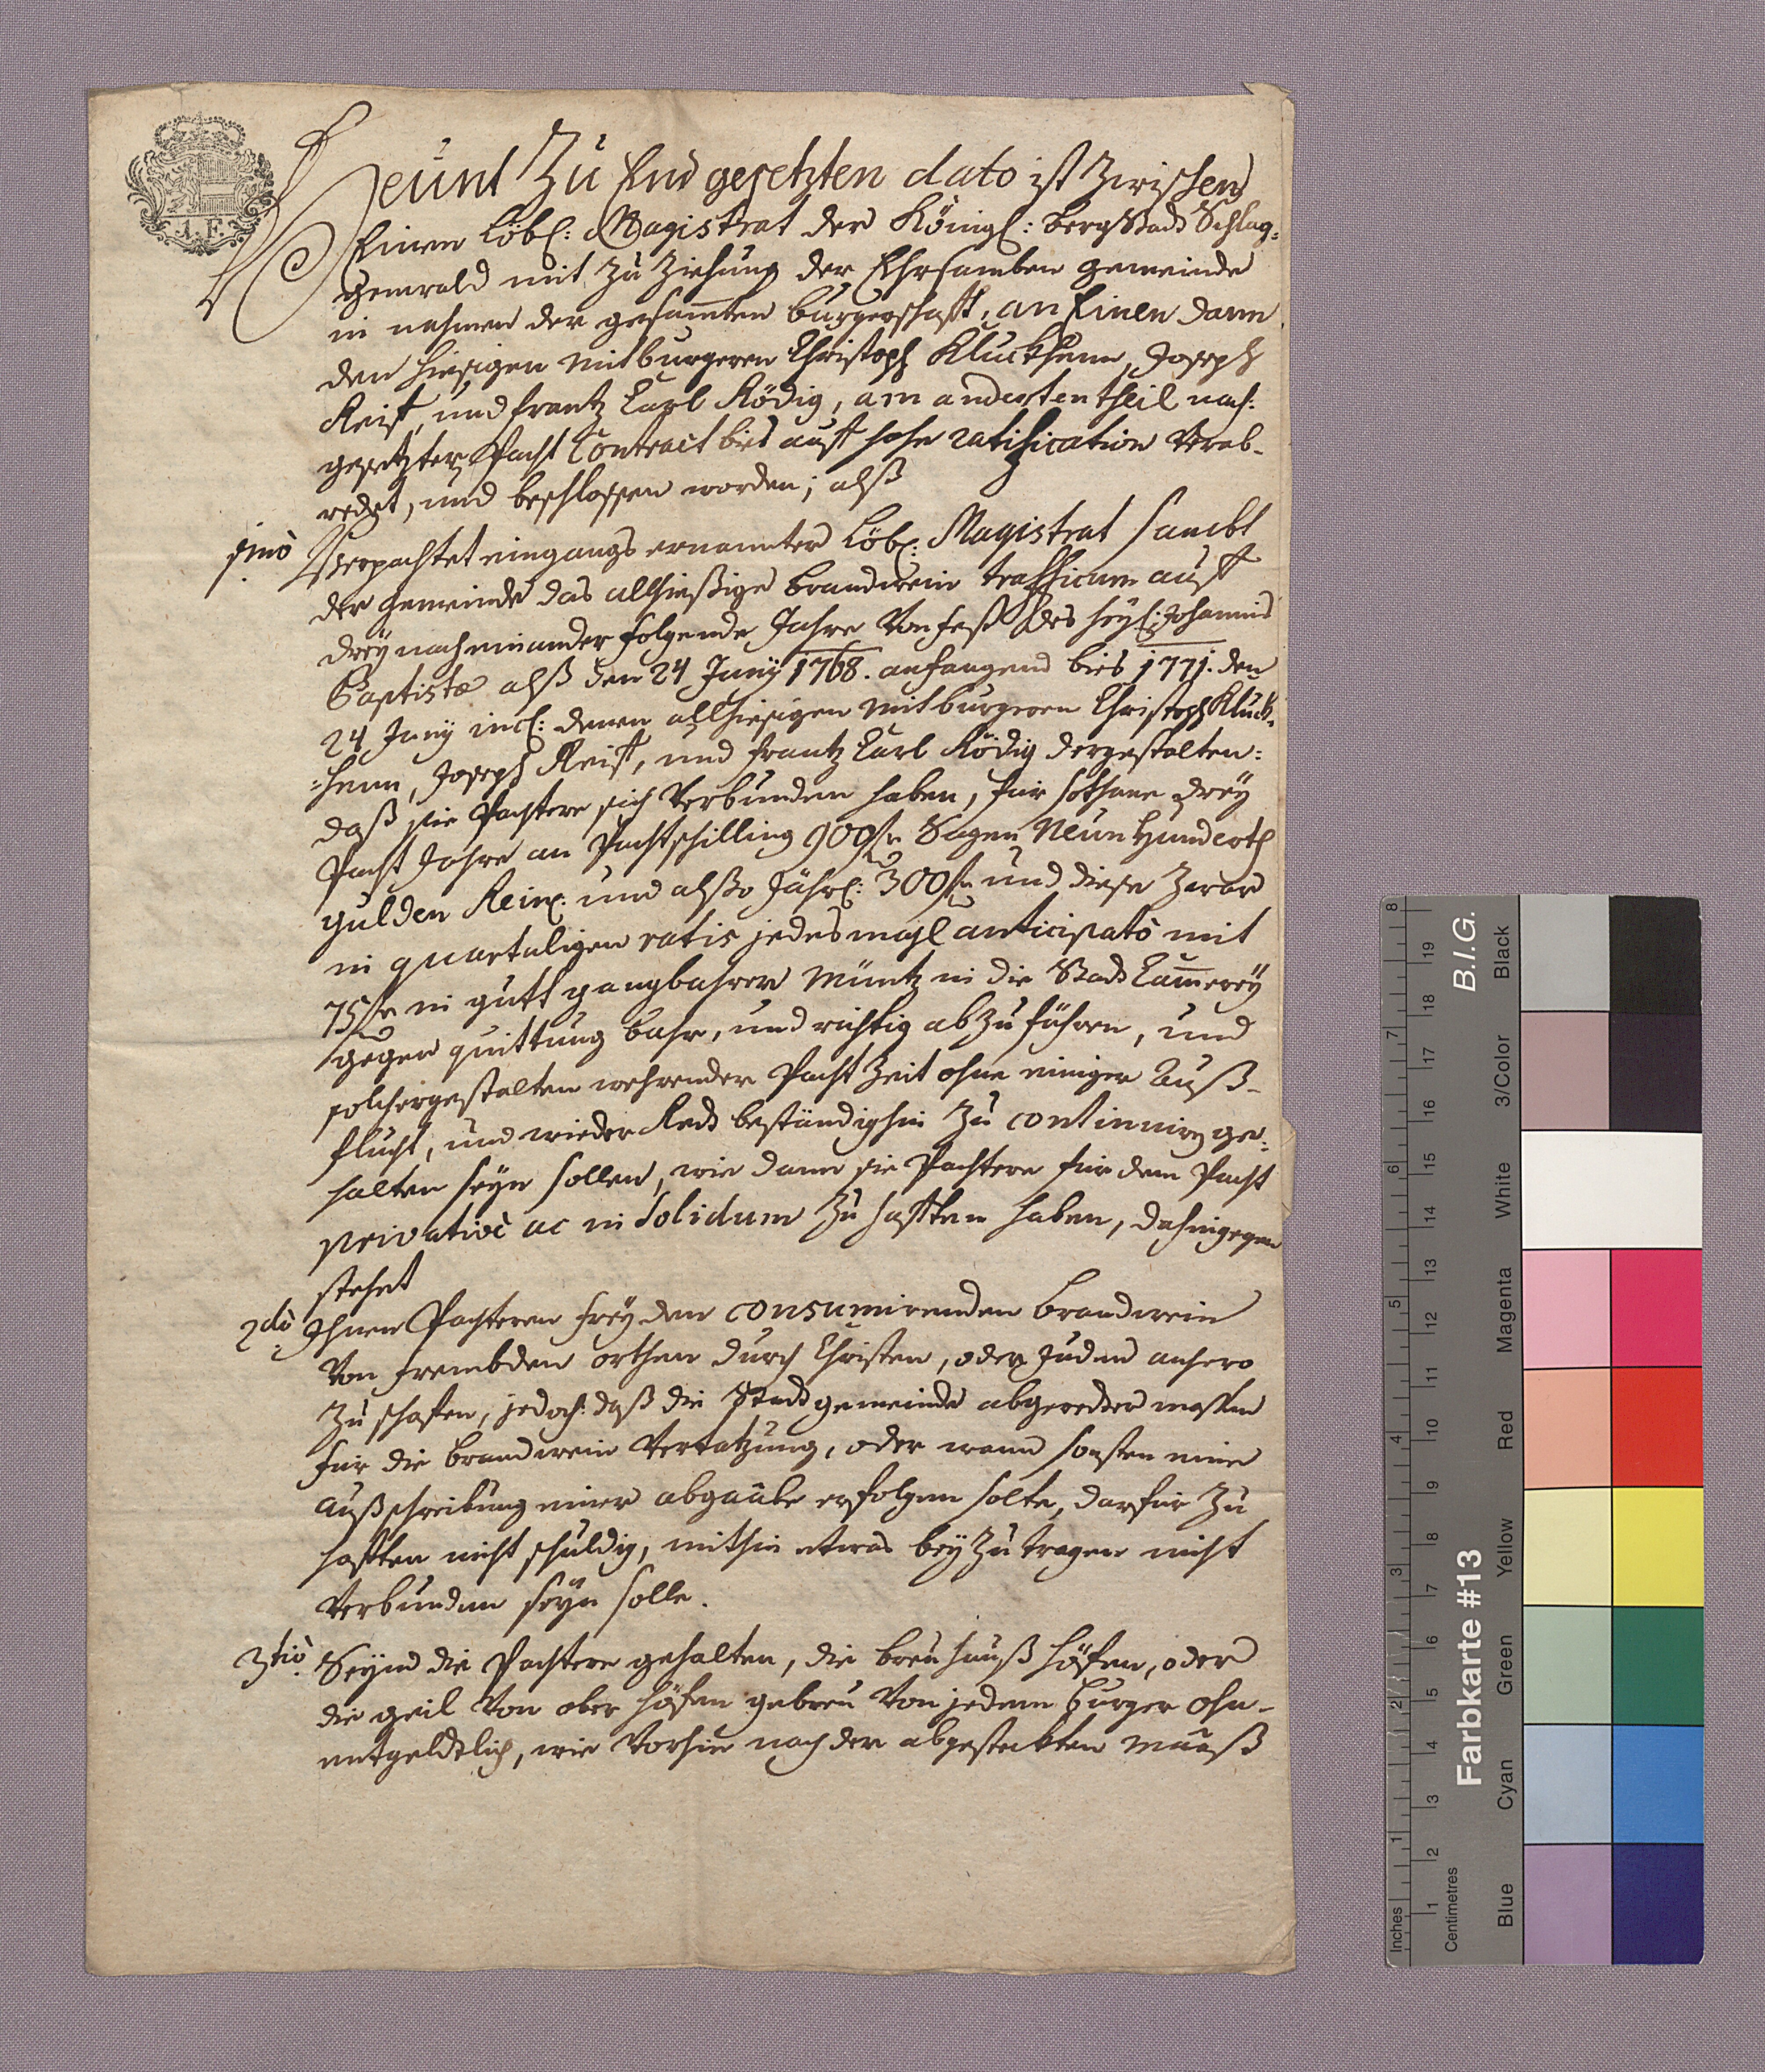 1. F.
Heünt Zu End gesetzten dato ist Zwischen
Einen Löbl: Magistrat der Königl: bergStadt Schlag-
genwald mit Zu Ziehung der Ehrsamben gemeinde
in nahmen der gesamten burgerschafft, an Einen dann
den hiesigen mitburgeren Christoph Kluckhenn, Joseph
Reist, und frantz Carl Rödig, am anderten theil nach:
gesetzter Pacht Contract bies auff hohe ratification Verab-
redet, und beschlossen worden; alß
1mò Verpachtet eingangs ernannter Löbl: Magistrat sambt
der gemeinde das allhießige brandwein trafficum auff
dreÿ nacheinander folgende Jahre Von fest des heÿl: Johannis
Baptistæ alß den 24 Junÿ 1768. anfangend bies 1771. den
24 Junÿ incl: denen allhiesigen mitburgeren Christoph Kluck-
-henn, Joseph Reist, und frantz Carl Rödig dergestalten:
daß sie Pachtere sich Verbunden haben, für sothane dreÿ
Pacht Jahre an Pachtschilling 900 fr Sagen Neun Hunderth
gulden Rein: und alßo Jährl: 300 fr und diese Zwar
in quartaligen ratis jedesmahl anticipatò mit
75 fr in gutt gangbahrer Müntz in die Stadt Cammereÿ
gegen quittung bahr, und richtig abzuführen, und
solchergestalten wehrender Pacht Zeit ohne einiger Auß-
flucht, und wieder Redt beständighin Zu continuiren ge-
halten seÿn sollen, wie dann sie Pachtere für dem Pacht
privativè ac in Solidum Zu hafften haben, dahingegen
stehet
2dò Ihnen Pachteren freÿ den consumirenden brandwein
Von frembden orthen durch Christen, oder Juden anhero
Zu schafen, jedoch: daß die Stadt gemeinde abgeredter massen
für die brandwein Vertatzung, oder wann sonsten eine
außschreibung einer abgaabe erfolgen solte, darfür Zu
hafften nicht schuldig, mithin etwas beÿ Zu tragen nicht
Verbunden seÿn solle.
3tiò Seÿnd die Pachtere gehalten, die breuhauß höfen, oder
die geil Von ober höfen gebreu Von jedem burger ohn-
entgeldtlich, wie Vorhin nach der abgesteckten Maaß
B.I.G.
Farbkarte #13
Inches
Centimetres
1 2 3 4 5 6 7 8
1 2 3 4 5 6 7 8 9 10 11 12 13 14 15 16 17 18 19
Blue
Cyan
Green
Yellow
Red
Magenta
White
3/Color
Black